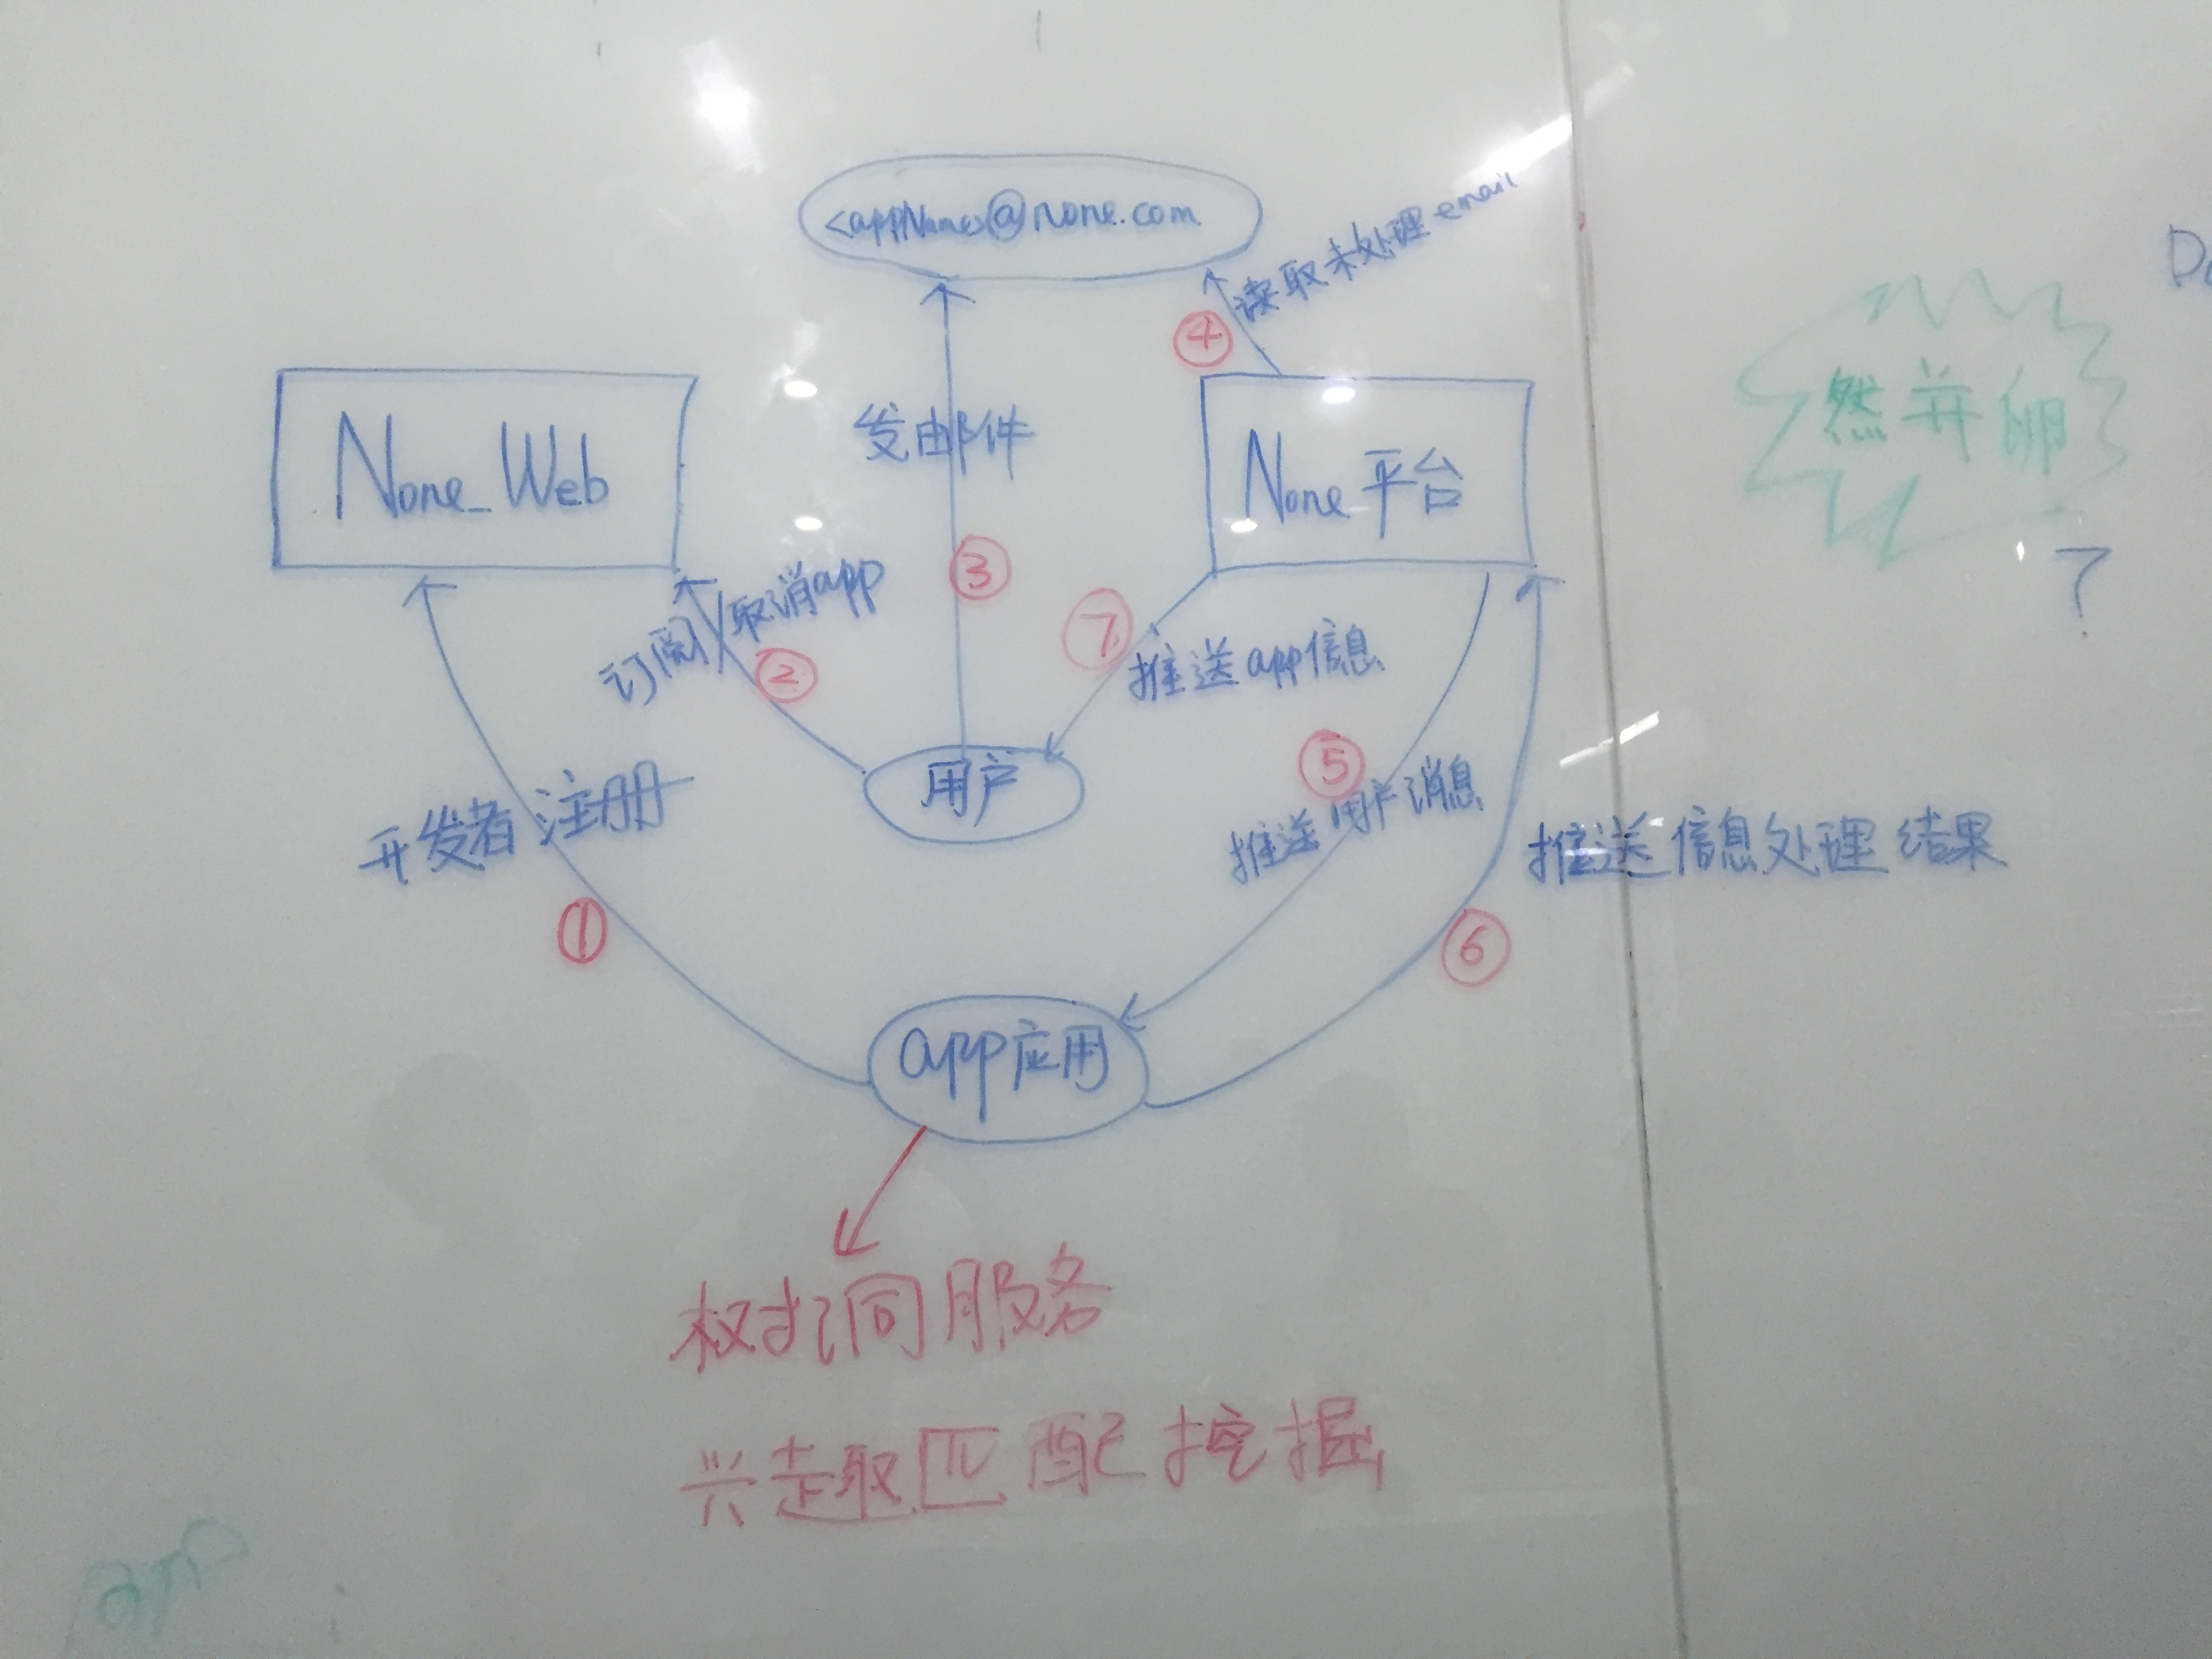 <appName>@none.com
读取未处理email
④
None_Web
发邮件
None平台
然并卵
?
③
订阅/取消app
②
⑦
推送app信息
用户
⑤
推送用户消息
开发者注册
①
推送信息处理结果
⑥
app应用
树洞服务
兴趣匹配挖掘